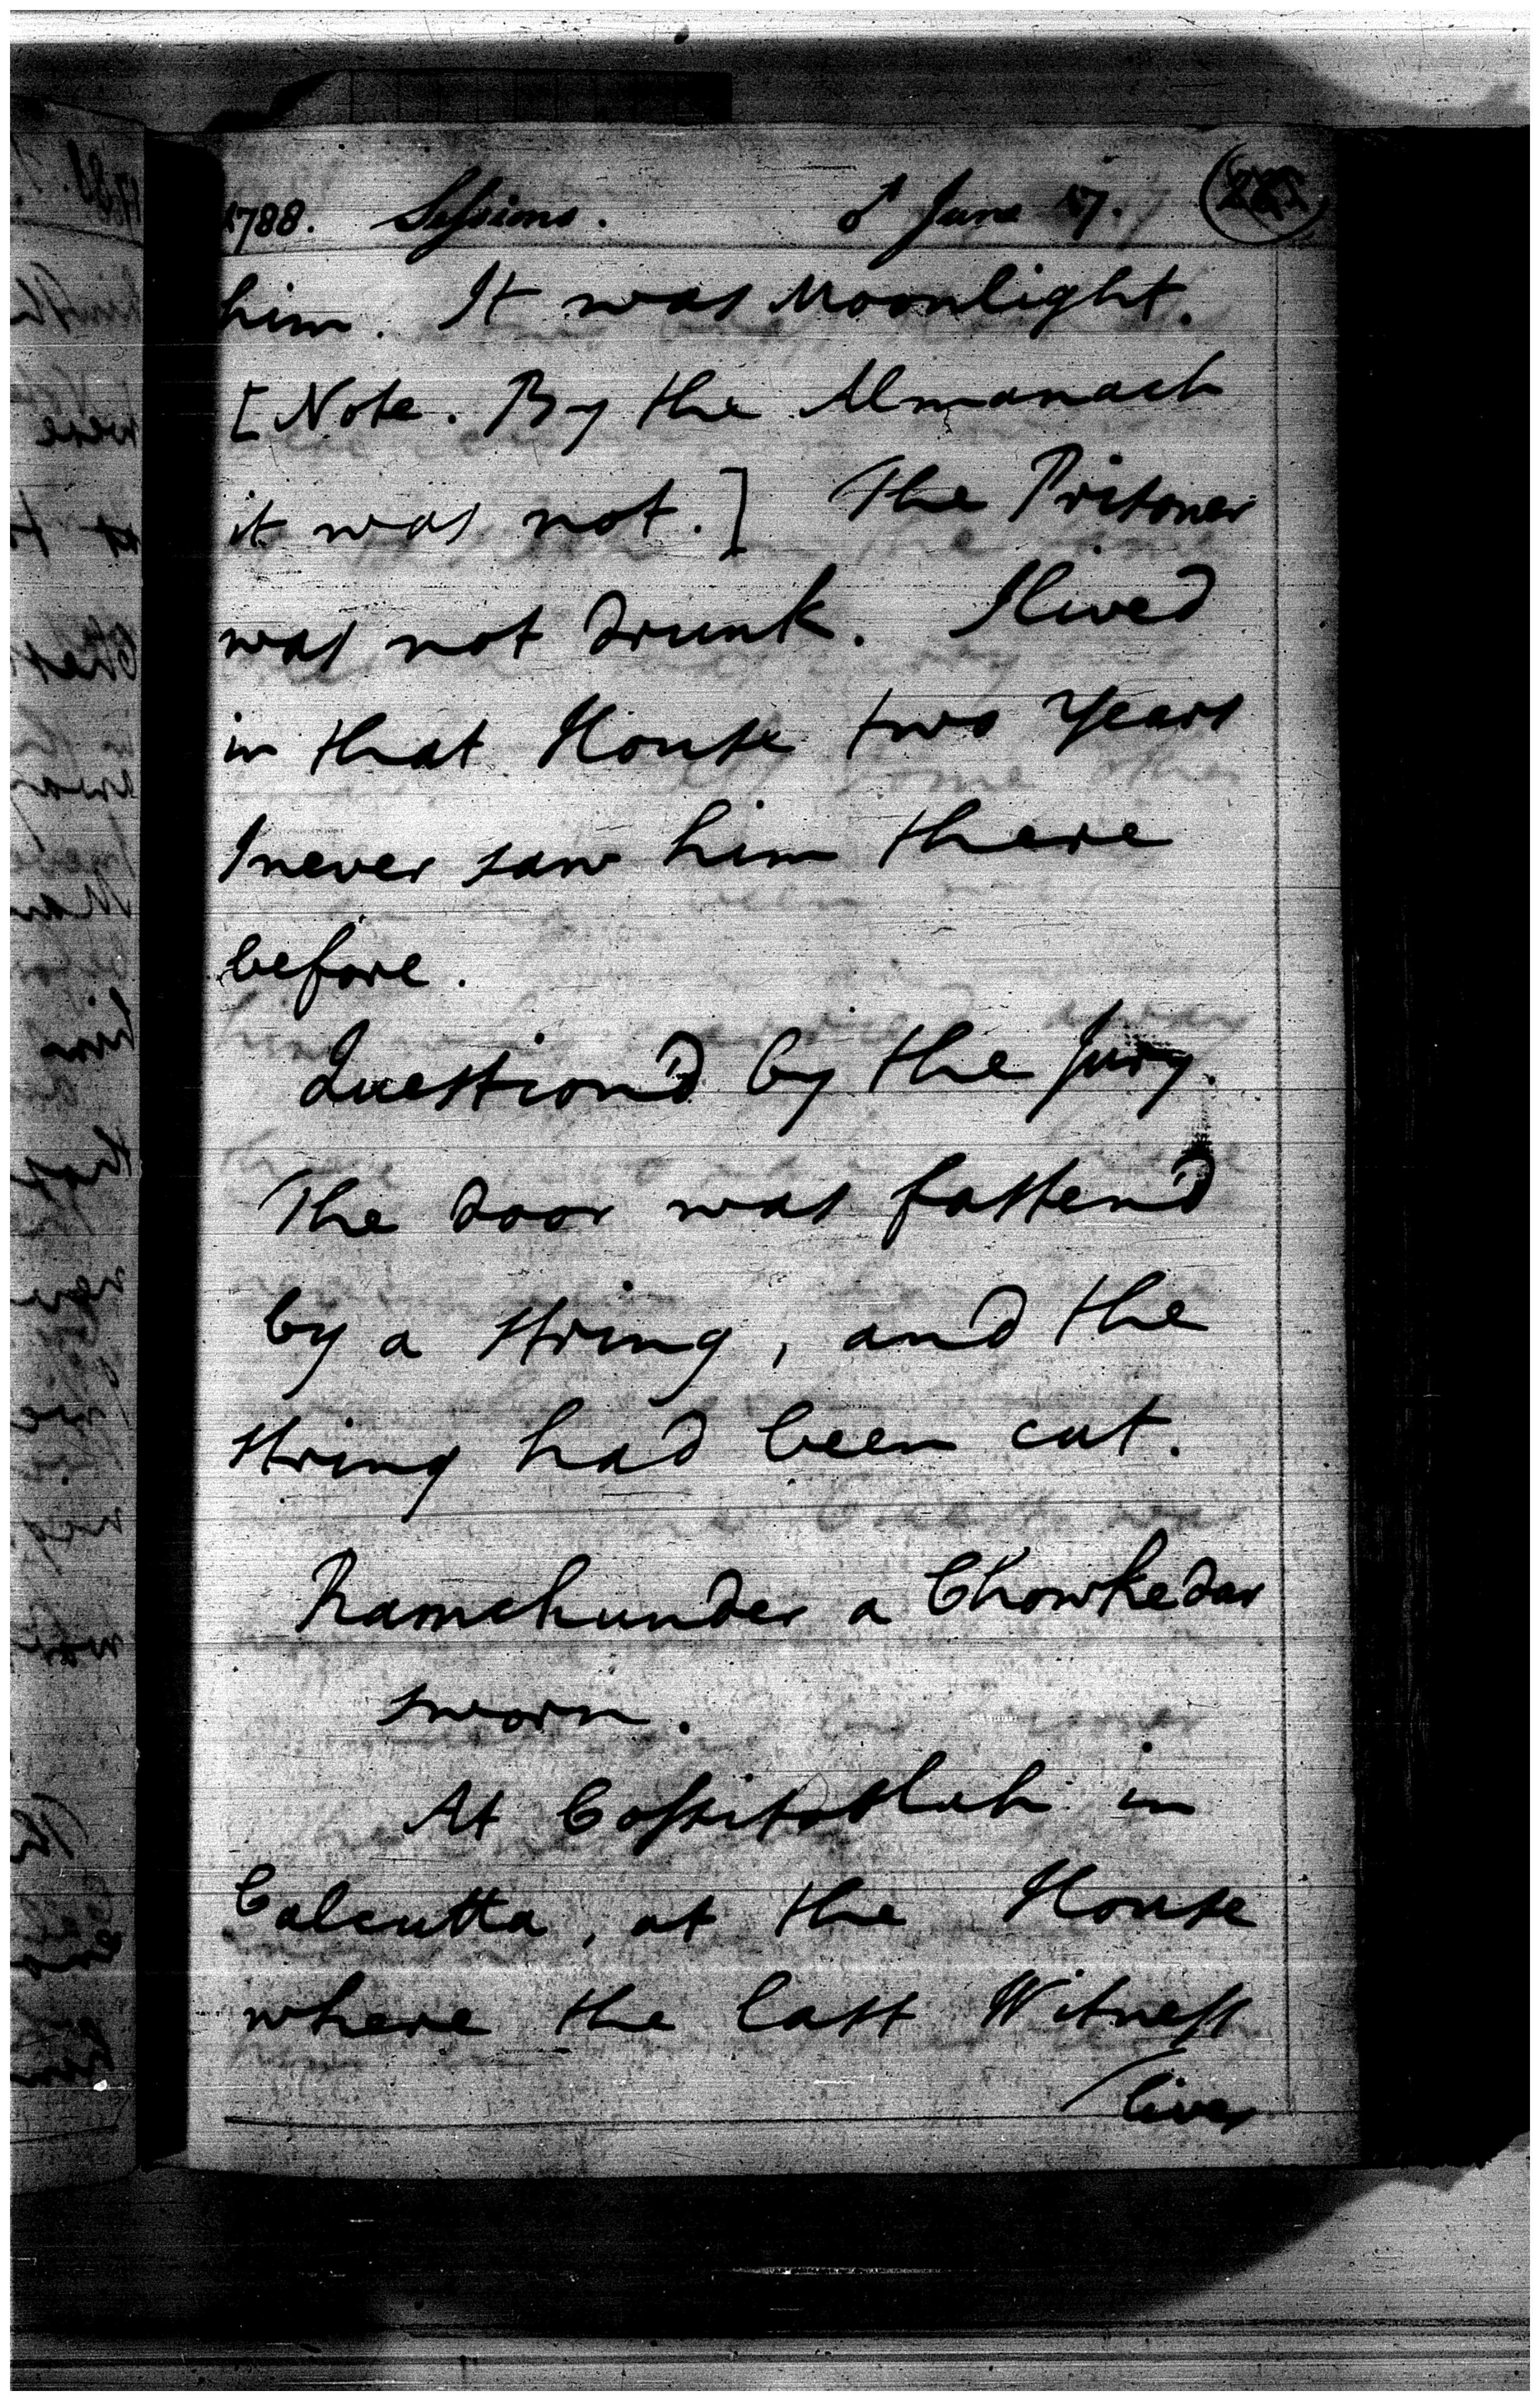 1788. Sessions. ♂ June 17.
him. It was Moonlight.
[Note. By the Almanack
it was not.] The Prisoner
was not drunk. I lived
in that House two Years
I never saw him there
before.
Question'd by the Jury.
The door was fasten'd
by a string, and the
string had been cut.
Ramchunder a Chowkedar
sworn.
At Cossitollah in
Calcutta, at the House
where the last Witness
lives